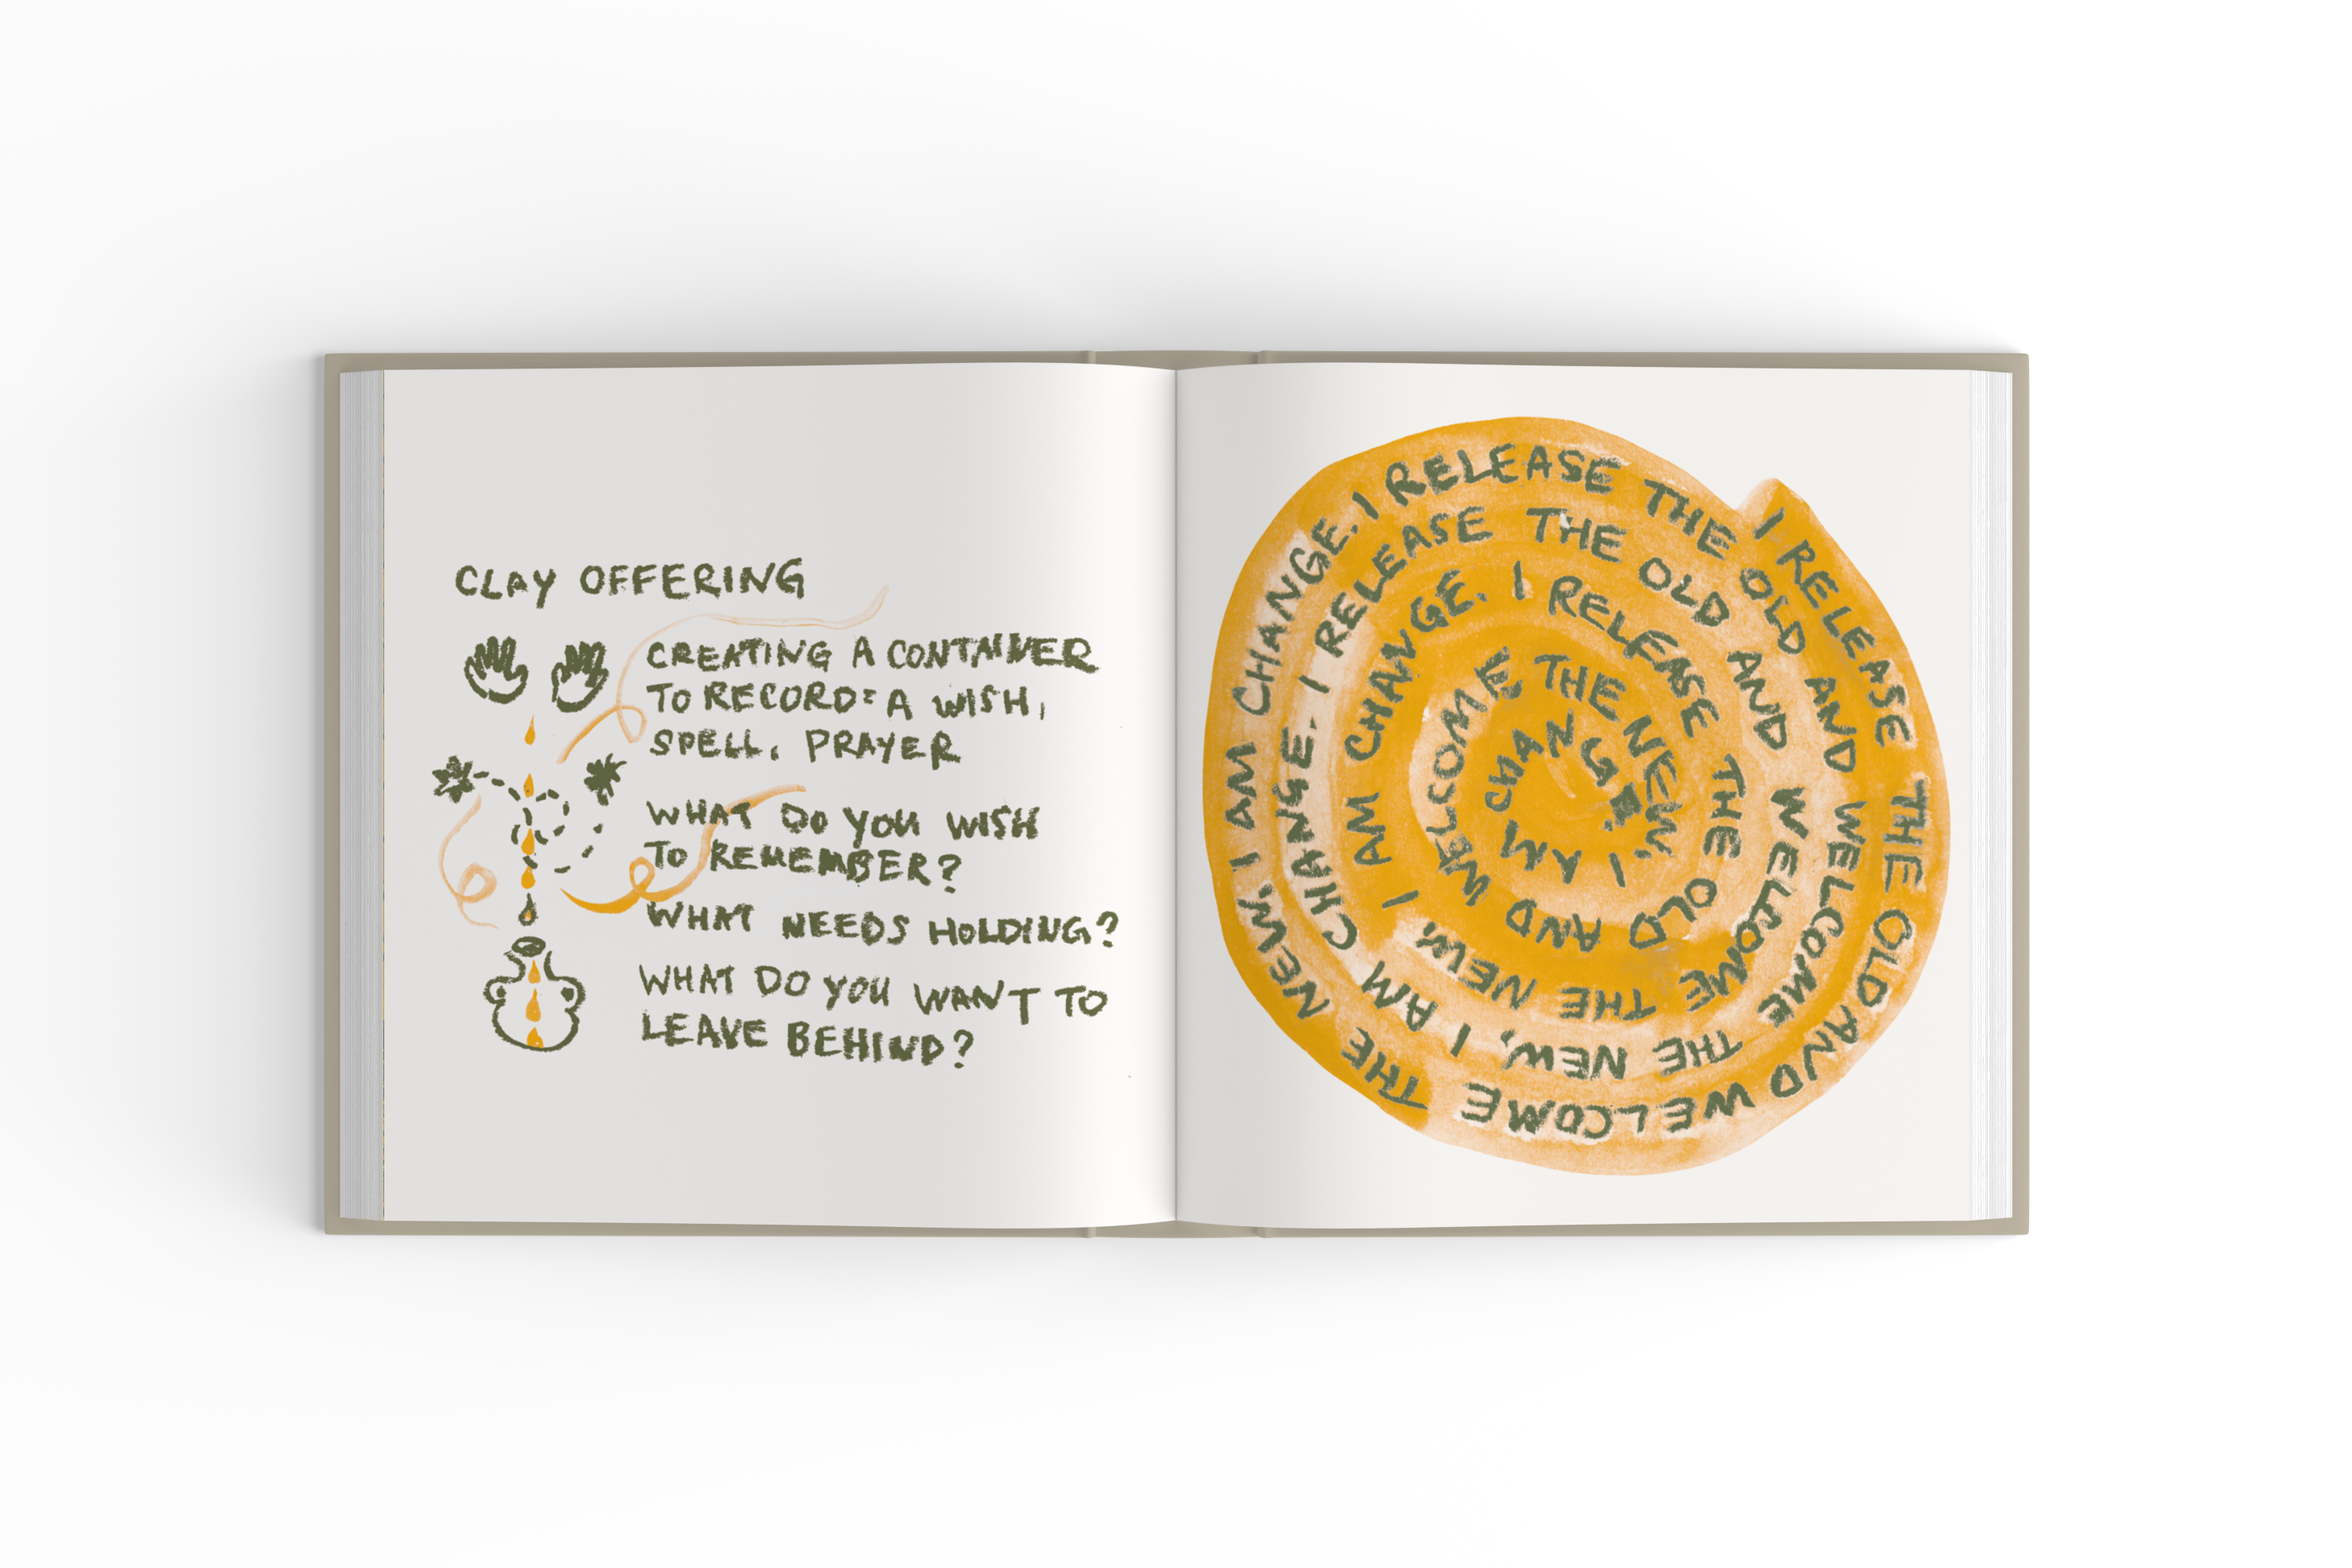 CLAY OFFERING
CREATING A CONTAINER
TO RECORD: A WISH,
SPELL, PRAYER
WHAT DO YOU WISH
TO REMEMBER?
WHAT NEEDS HOLDING?
WHAT DO YOU WANT TO
LEAVE BEHIND?
I RELEASE THE OLD AND WELCOME THE NEW. I AM CHANGE. I RELEASE THE OLD AND WELCOME THE NEW, I AM CHANGE. I RELEASE THE OLD AND WELCOME THE NEW. I AM CHANGE. I RELEASE THE OLD AND WELCOME THE NEW. I AM CHANGE.